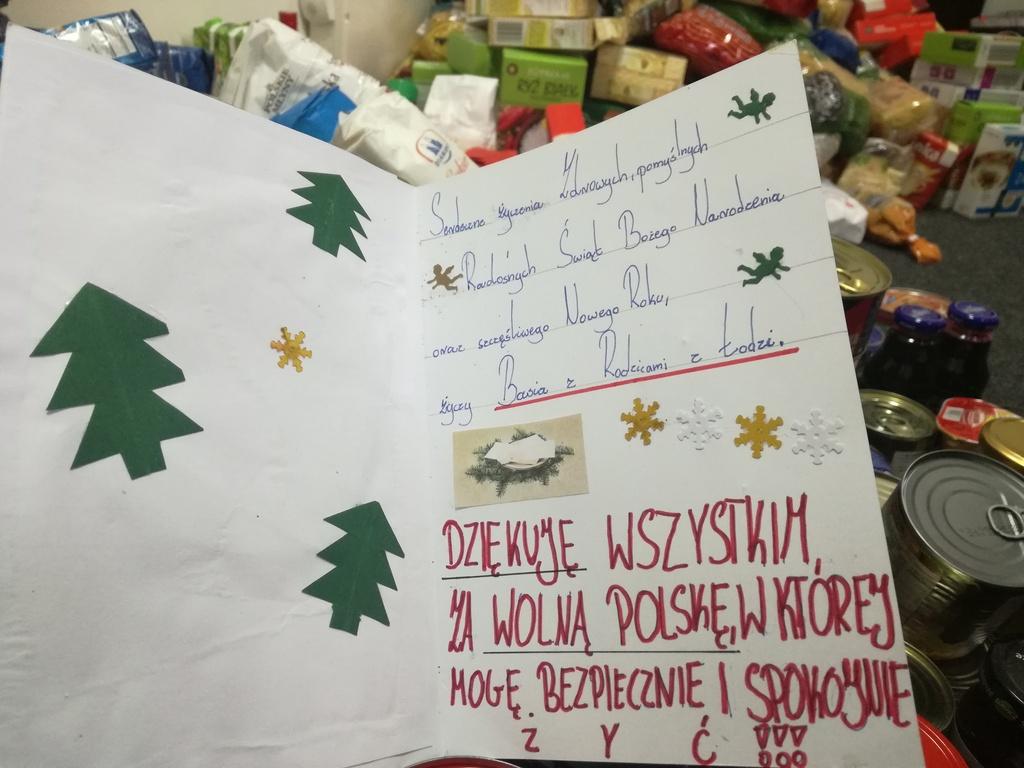 RYŻ BIAŁY
Serdeczne życzenia Zdrowych, pomyślnych
Radosnych Świąt Bożego Narodzenia
oraz szczęśliwego Nowego Roku,
życzy Basia z Rodzicami z Łodzi.
DZIĘKUJĘ WSZYSTKIM,
ZA WOLNĄ POLSKĘ, W KTÓREJ
MOGĘ BEZPIECZNIE I SPOKOJNIE
ŻYĆ!!!